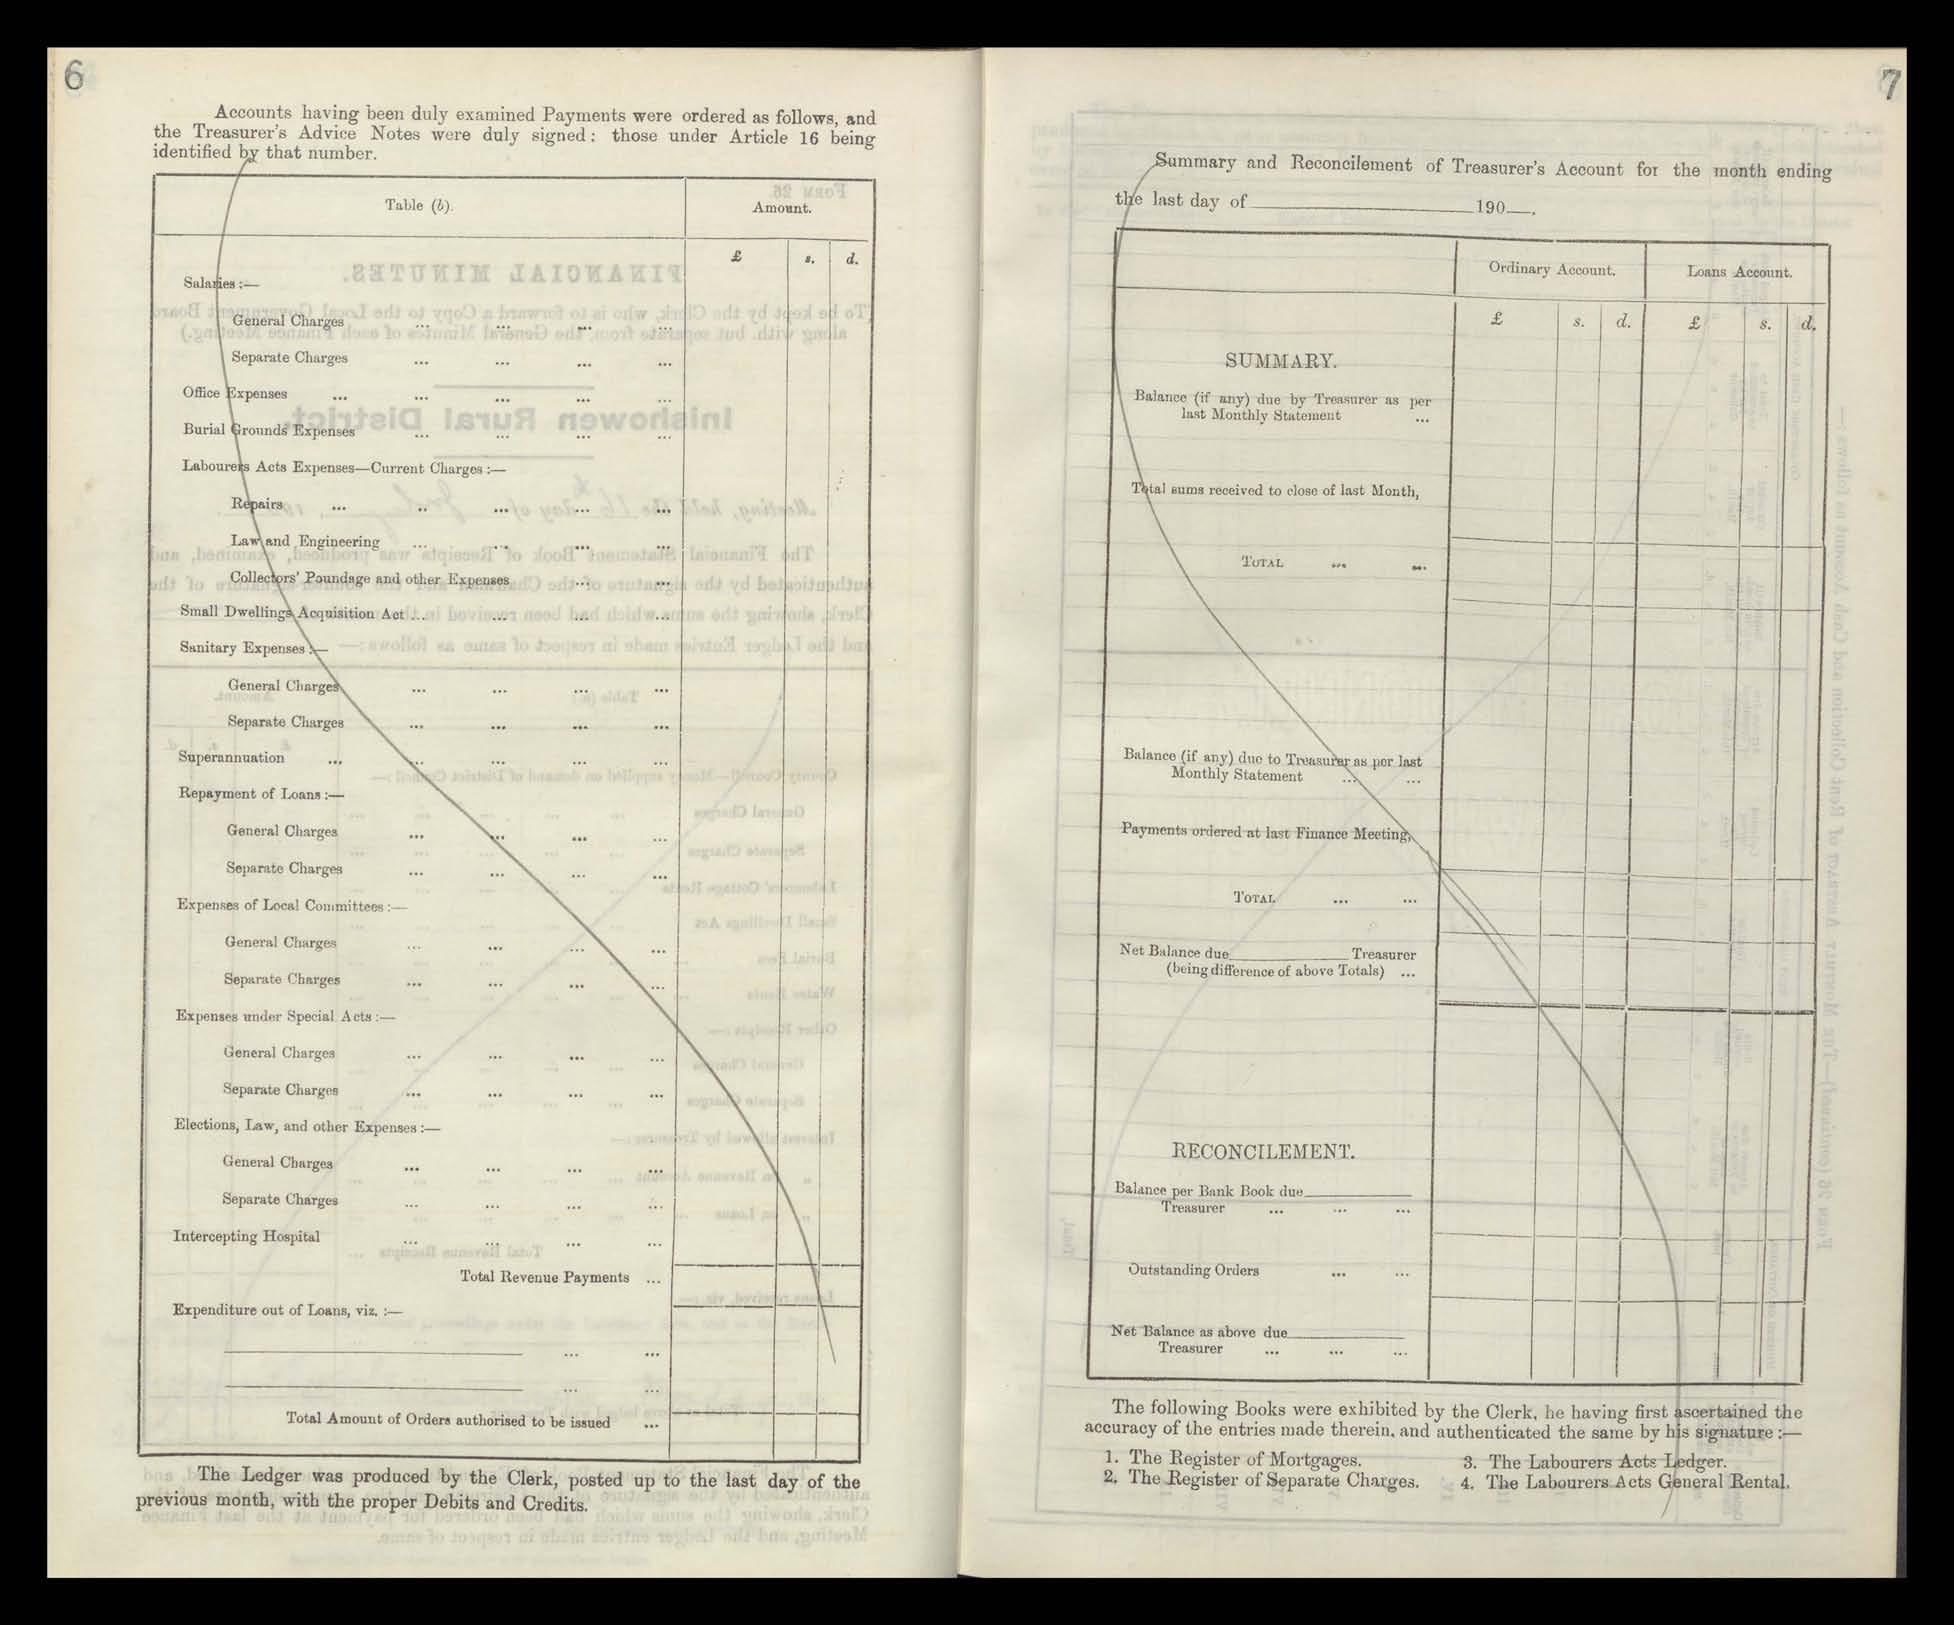 6
Accounts having been duly examined Payments were ordered as follows, and
the Treasurer's Advice Notes were duly signed: those under Article 16 being
identified by that number.
Table (b).
Amount.
£ s. d.
Salaries :—
General Charges ... ... ... ...
Separate Charges ... ... ... ...
Office Expenses ... ... ... ... ...
Burial Grounds Expenses ... ... ... ...
Labourers Acts Expenses—Current Charges :—
Repairs ... .. ... ... ...
Law and Engineering ... ... ... ...
Collectors' Poundage and other Expenses ... ...
Small Dwellings Acquisition Act ... ... ... ...
Sanitary Expenses :—
General Charges ... ... ... ...
Separate Charges ... ... ... ...
Superannuation ... ... ... ... ...
Repayment of Loans :—
General Charges ... ... ... ...
Separate Charges ... ... ... ...
Expenses of Local Committees :—
General Charges ... ... ... ...
Separate Charges ... ... ... ...
Expenses under Special Acts :—
General Charges ... ... ... ...
Separate Charges ... ... ... ...
Elections, Law, and other Expenses :—
General Charges ... ... ... ...
Separate Charges ... ... ... ...
Intercepting Hospital ... ... ... ...
Total Revenue Payments ...
Expenditure out of Loans, viz. :—
... ...
... ...
Total Amount of Orders authorised to be issued ...
The Ledger was produced by the Clerk, posted up to the last day of the
previous month, with the proper Debits and Credits.
7
Summary and Reconcilement of Treasurer's Account for the month ending
the last day of ____ 190__.
Ordinary Account. Loans Account.
£ s. d. £ s. d.
SUMMARY.
Balance (if any) due by Treasurer as per
last Monthly Statement ...
Total sums received to close of last Month,
TOTAL ... ...
Balance (if any) due to Treasurer as per last
Monthly Statement ... ...
Payments ordered at last Finance Meeting,
TOTAL ... ...
Net Balance due ____ Treasurer
(being difference of above Totals) ...
RECONCILEMENT.
Balance per Bank Book due ____
Treasurer ... ... ...
Outstanding Orders ... ...
Net Balance as above due ____
Treasurer ... ... ...
The following Books were exhibited by the Clerk, he having first ascertained the
accuracy of the entries made therein, and authenticated the same by his signature :—
1. The Register of Mortgages.
2. The Register of Separate Charges.
3. The Labourers Acts Ledger.
4. The Labourers Acts General Rental.